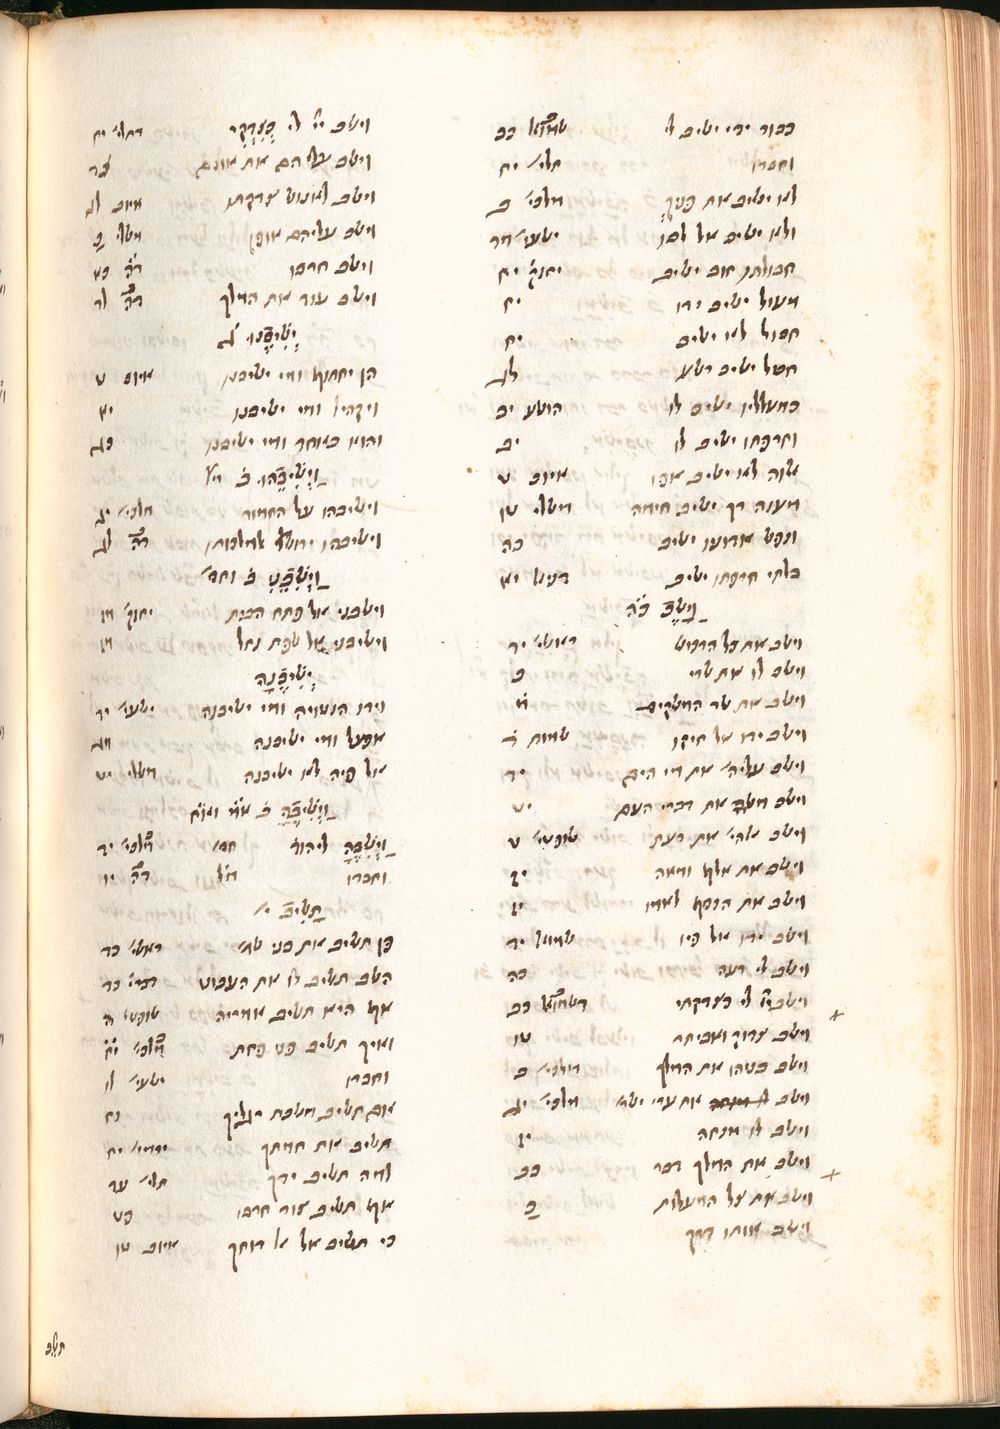 כבור ידי ישיב לי שמוא כב
וחברו תלי׳ יח
לא ישיב את פניך מלכי׳ ב
ולא ישיב אל לבו ישעי׳ מד
חבולתו חוב ישיב יחזק׳ יח
מעול ישיב ידו יח
חבול לא ישיב יח
חבול ישיב רשע לג
כמעלליו ישיב לו הושע יב
וחרפתו ישיב לו יב
אלוה לא ישיב אפו איוב ט
מענה רך ישיב חימה משלי טו
ונפש אדוניו ישיב כה
בלתי חרפתו ישיב דניאל יא
וַיָּשֶׁב כ״ה
וישב את כל הרכוש ראשי׳ יד
וישב לו את שרי כ
וישב את שר המשקים מ
וישב ידו אל חיקו שמות ד
וישב עליה׳ את מי הים יד
וישב משה את דברי העם יט
וישב אלהי׳ את רעת שופטי׳ ט
וישב את אלף ומאה יז
וישב את הכסף לאמו יז
וישב ידו אל פיו שמואל יד
וישב לי רעה כה
וישב יי לי כצדקתי דשמוא כב
וישב צדוק ואביתר טו
וישב בניהו את המלך דמלכי׳ ב
וישב את ערי ישר׳ מלכי׳ יג
וישב לו מנחה יז
וישב את המלך דבר כב
וישב את צל המעלות כ
וישב אותו דרך
וישב יי׳ לי כְצִדְקִי דתלי׳ יח
וישב עליהם את אונם צד
וישב לאנוש צדקתו איוב לג
וישב עליהם אופן משלי כ
וישב חרבו דה כא
וישב עוד את המלך דה לד
יְשִׁיבֶנּוּ ג
הן יחתוף ומי ישיבנו איוב ט
ויקהיל ומי ישיבנו יא
והוא באוחד ומי ישיבנו כג
וַיְשִׁיבֵהוּ ב׳
וישיבהו על החמור מלכי׳ יג
וישיבהו ירושל׳ למלכותו דה לג
וַיְשִׁבֵנִי ב׳ וחס׳
וישבני אל פתח הבית יחזק׳ מז
וישיבני אל שפת נחל מז
יְשִׁיבֶנָּה
וידו הנטויה ומי ישיבנה ישעי׳ יד
אפעל ומי ישיבנה מג
אל פיה לא ישיבנה משלי יט
וַיְשִׁיבֶהָ ב׳
וַיְשִׁבֶהָ ליהוד׳ חס׳ דמלכי׳ יד
וחברו מל׳ דה יו
תָּשִׁיב י׳
פן תשיב את בני שמ׳ ראשי׳ כד
השב תשיב לו את העבוט דברי׳ כד
אף היא תשיב אמריה שופטי׳ ה
ואיך תשיב פני פחת דמלכי׳ יח
וחברו ישעי׳ לו
אם תשיב משבת רגליך נח
תשיב את חמתך ירמי׳ יח
למה תשיב ידך תלי׳ עד
אף תשיב צור חרבו פט
כי תשיב אל אל רוחך איוב טו
תשיב